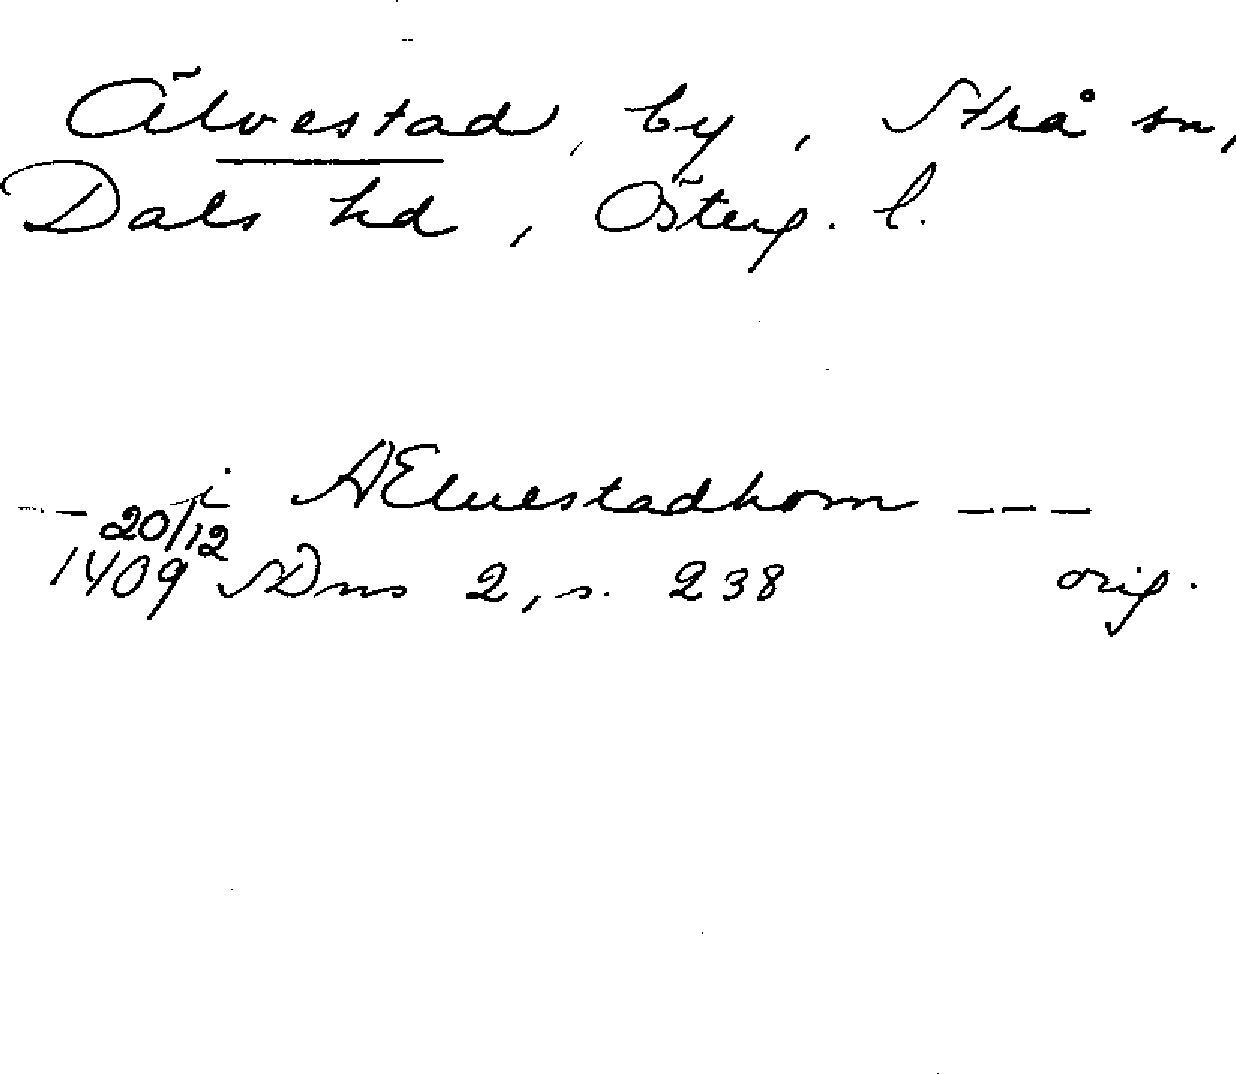 Älvestad, by, Strå sn,
Dals hd, Österg. l.
--- i AEluestadhom ---
20/12
1409 SDns 2, s. 238 orig.